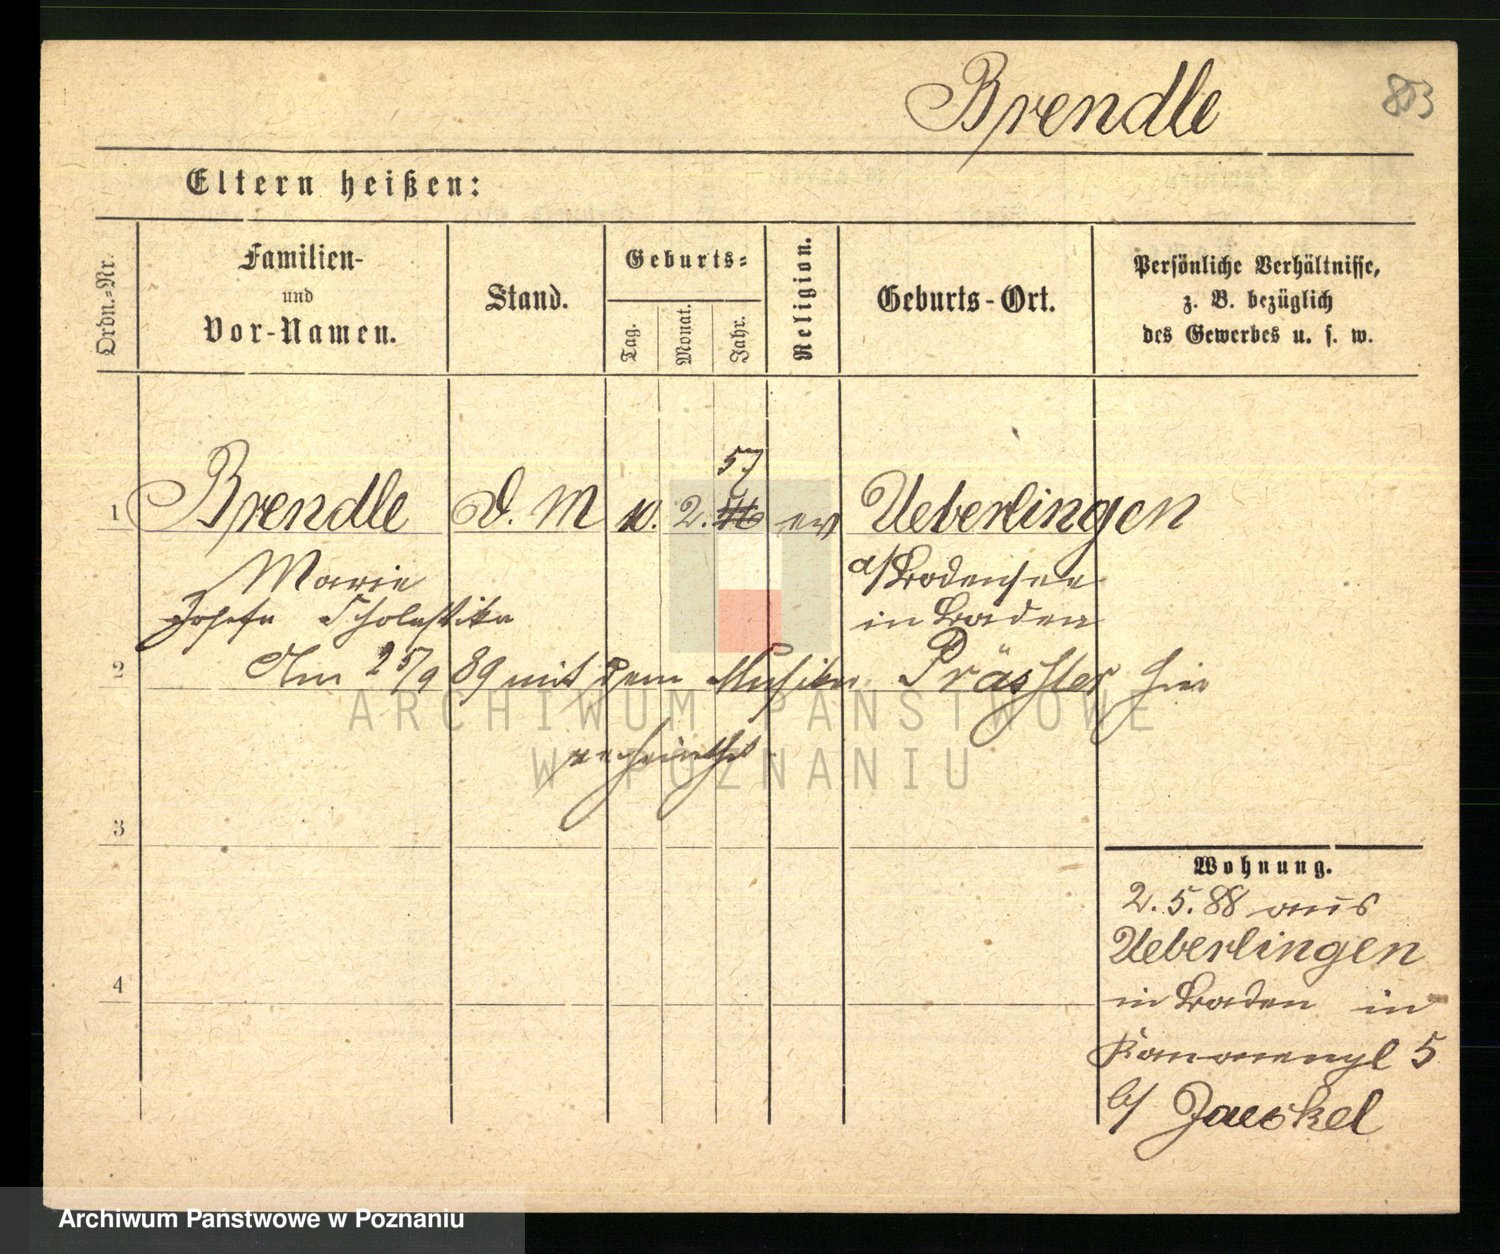 Brendle 803
Eltern heißen:
Ordn.-Nr.
Familien-
und
Vor-Namen.
Stand.
Geburts-
Tag.
Monat.
Jahr.
Religion.
Geburts-Ort.
Persönliche Verhältnisse,
z. B. bezüglich
des Gewerbes u. s. w.
57
1 Brendle D. M 10. 2. 46 ev Ueberlingen
Marie a/Bodensee
Josefa Scholastika in Baden
2 Am 25/9 89 mit dem Musiker Prässler hier
verheirathet
ARCHIWUM PAŃSTWOWE
W POZNANIU
3
Wohnung.
2. 5. 88 aus
Ueberlingen
4 in Baden in
Kanonenpl 5
b/ Jaeckel
Archiwum Państwowe w Poznaniu